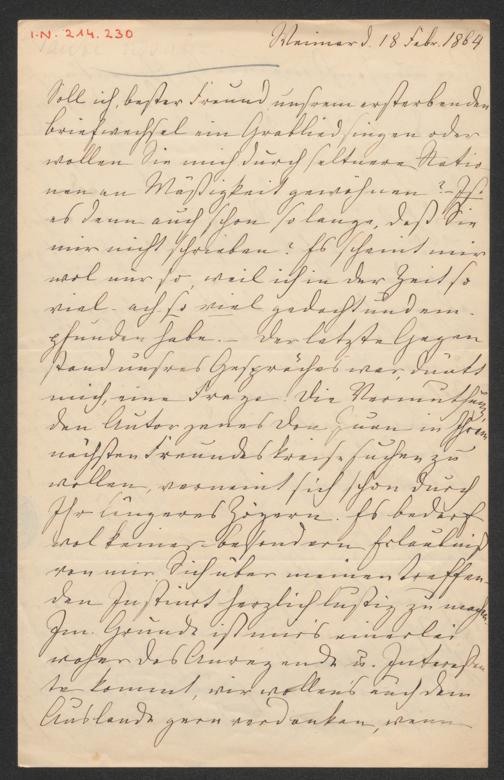 I.N. 214.230
Weimar d. 18 Febr. 1864
Soll ich, bester Freund unsrem ersterbenden
Briefwechsel ein Grablied singen oder
wollen Sie mich durch seltnere Ratio
nen an Mäßigkeit gewöhnen? – Ist
es denn auch schon so lange, daß Sie
mir nicht schrieben? Es scheint mir
wol nur so, weil ich in der Zeit so
viel – ach so viel gedacht und em-
pfunden habe. – Der letzte Gegen
stand unsres Gespräches war, dünkt
mich, eine Frage. Die Vermuthung,
den Autor jenes Don Juan in Ihrem
nächsten Freundeskreise suchen zu
wollen, verneint sich schon durch
Ihr längeres Zögern. Es bedarf
wol keiner besondern Erlaubniß
von mir Sich über meinen treffen-
den Instinct herzlich lustig zu machen.
Im Grunde ist mir's einerlei
woher das Anregende u. Interessan
te kommt, wir wollen's auch dem
Auslande gern verdanken, wenn